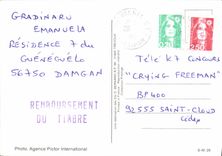 GRADINARU
EMANUELA
RÉSIDENCE 7 du
GUÉNÉGUÉLO
56750 DAMGAN
REMBOURSEMENT
DU TIMBRE
2,50
TÉLÉ K7 CONCOURS
"CRYING FREEMAN"
BP 400
92555 SAINT-CLOUD
Cedex
Photo. Agence Pictor International